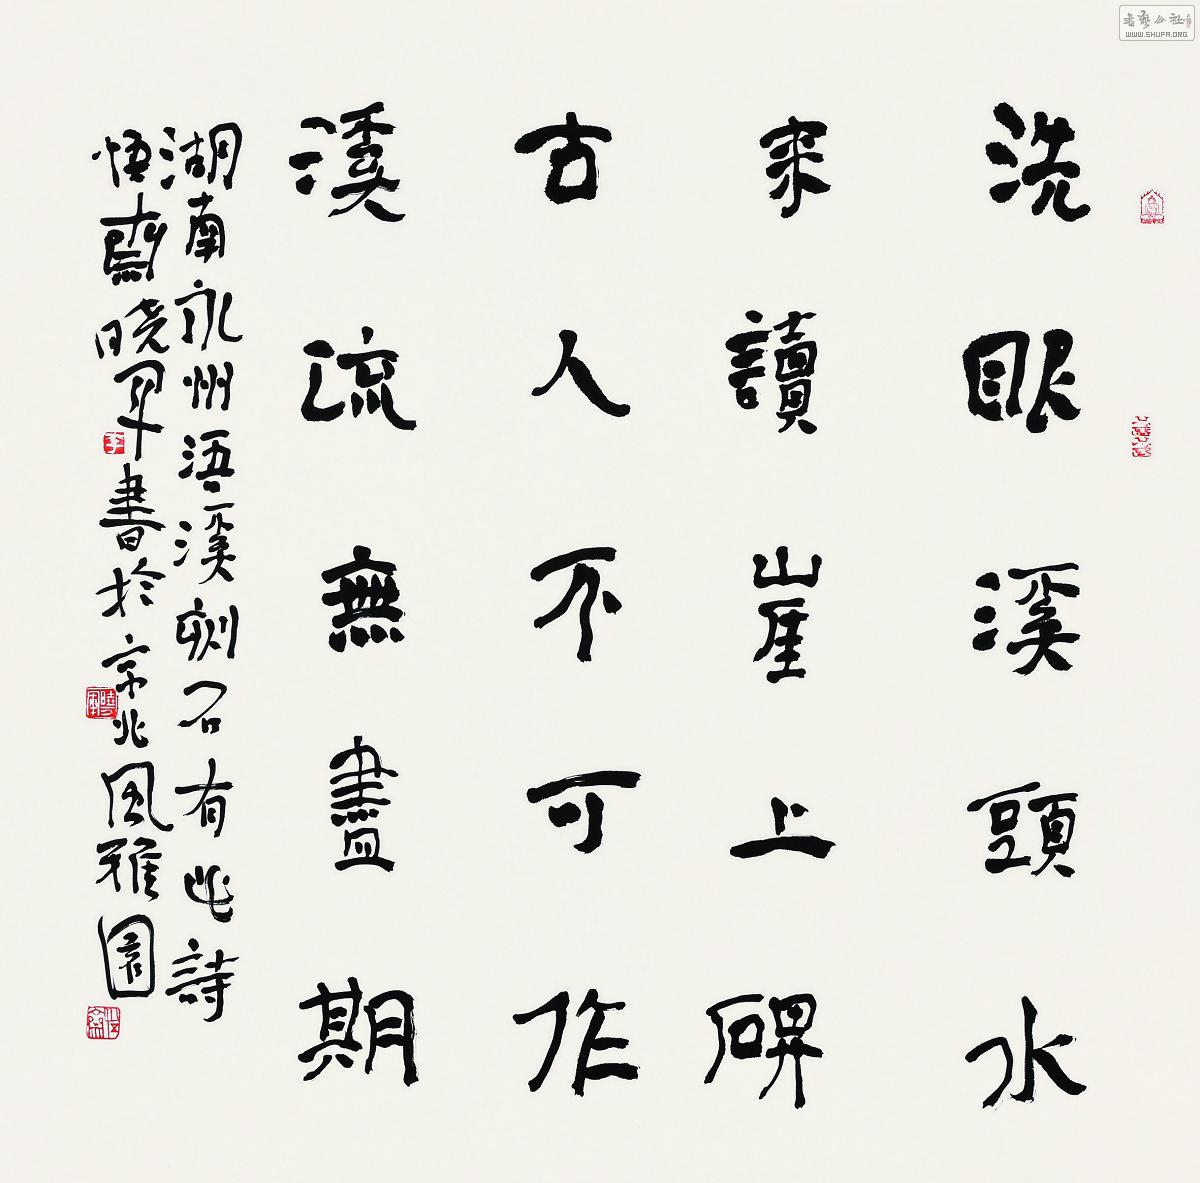 洗眼溪頭水
來讀崖上碑
古人不可作
溪流無盡期
湖南永州浯溪刻石有此詩
悟齋曉軍書於京北風雅園
書藝公社
WWW.SHUFA.ORG